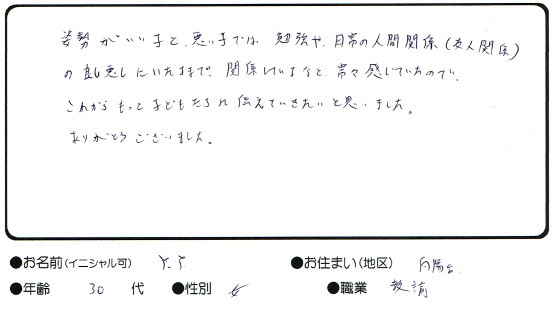 姿勢がいい子と、悪い子では、勉強や、日常の人間関係(友人関係)
の良し悪しにいたるまで、関係しているなと、常々感じていたので、
これからもっと子どもたちに伝えていきたいと思いました。
ありがとうございました。
●お名前(イニシャル可) Y.S ●お住まい(地区) 向陽台
●年齢 30 代 ●性別 女 ●職業 教諭